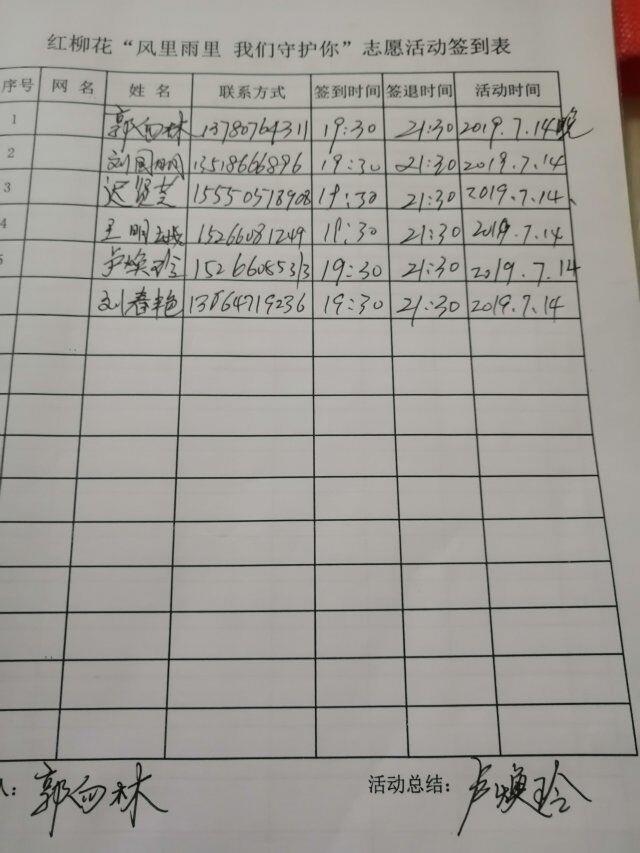 红柳花“风里雨里 我们守护你”志愿活动签到表
序号 网 名 姓 名 联系方式 签到时间 签退时间 活动时间
1 郭向林 13780764311 19:30 21:30 2019.7.14晚
2 刘国明 13518666896 19:30 21:30 2019.7.14
3 迟贤芝 15550518908 19:30 21:30 2019.7.14
4 王明 15266081249 19:30 21:30 2019.7.14
5 卢焕玲 15266085313 19:30 21:30 2019.7.14
刘春艳 13864719236 19:30 21:30 2019.7.14
郭向林 活动总结: 卢焕玲